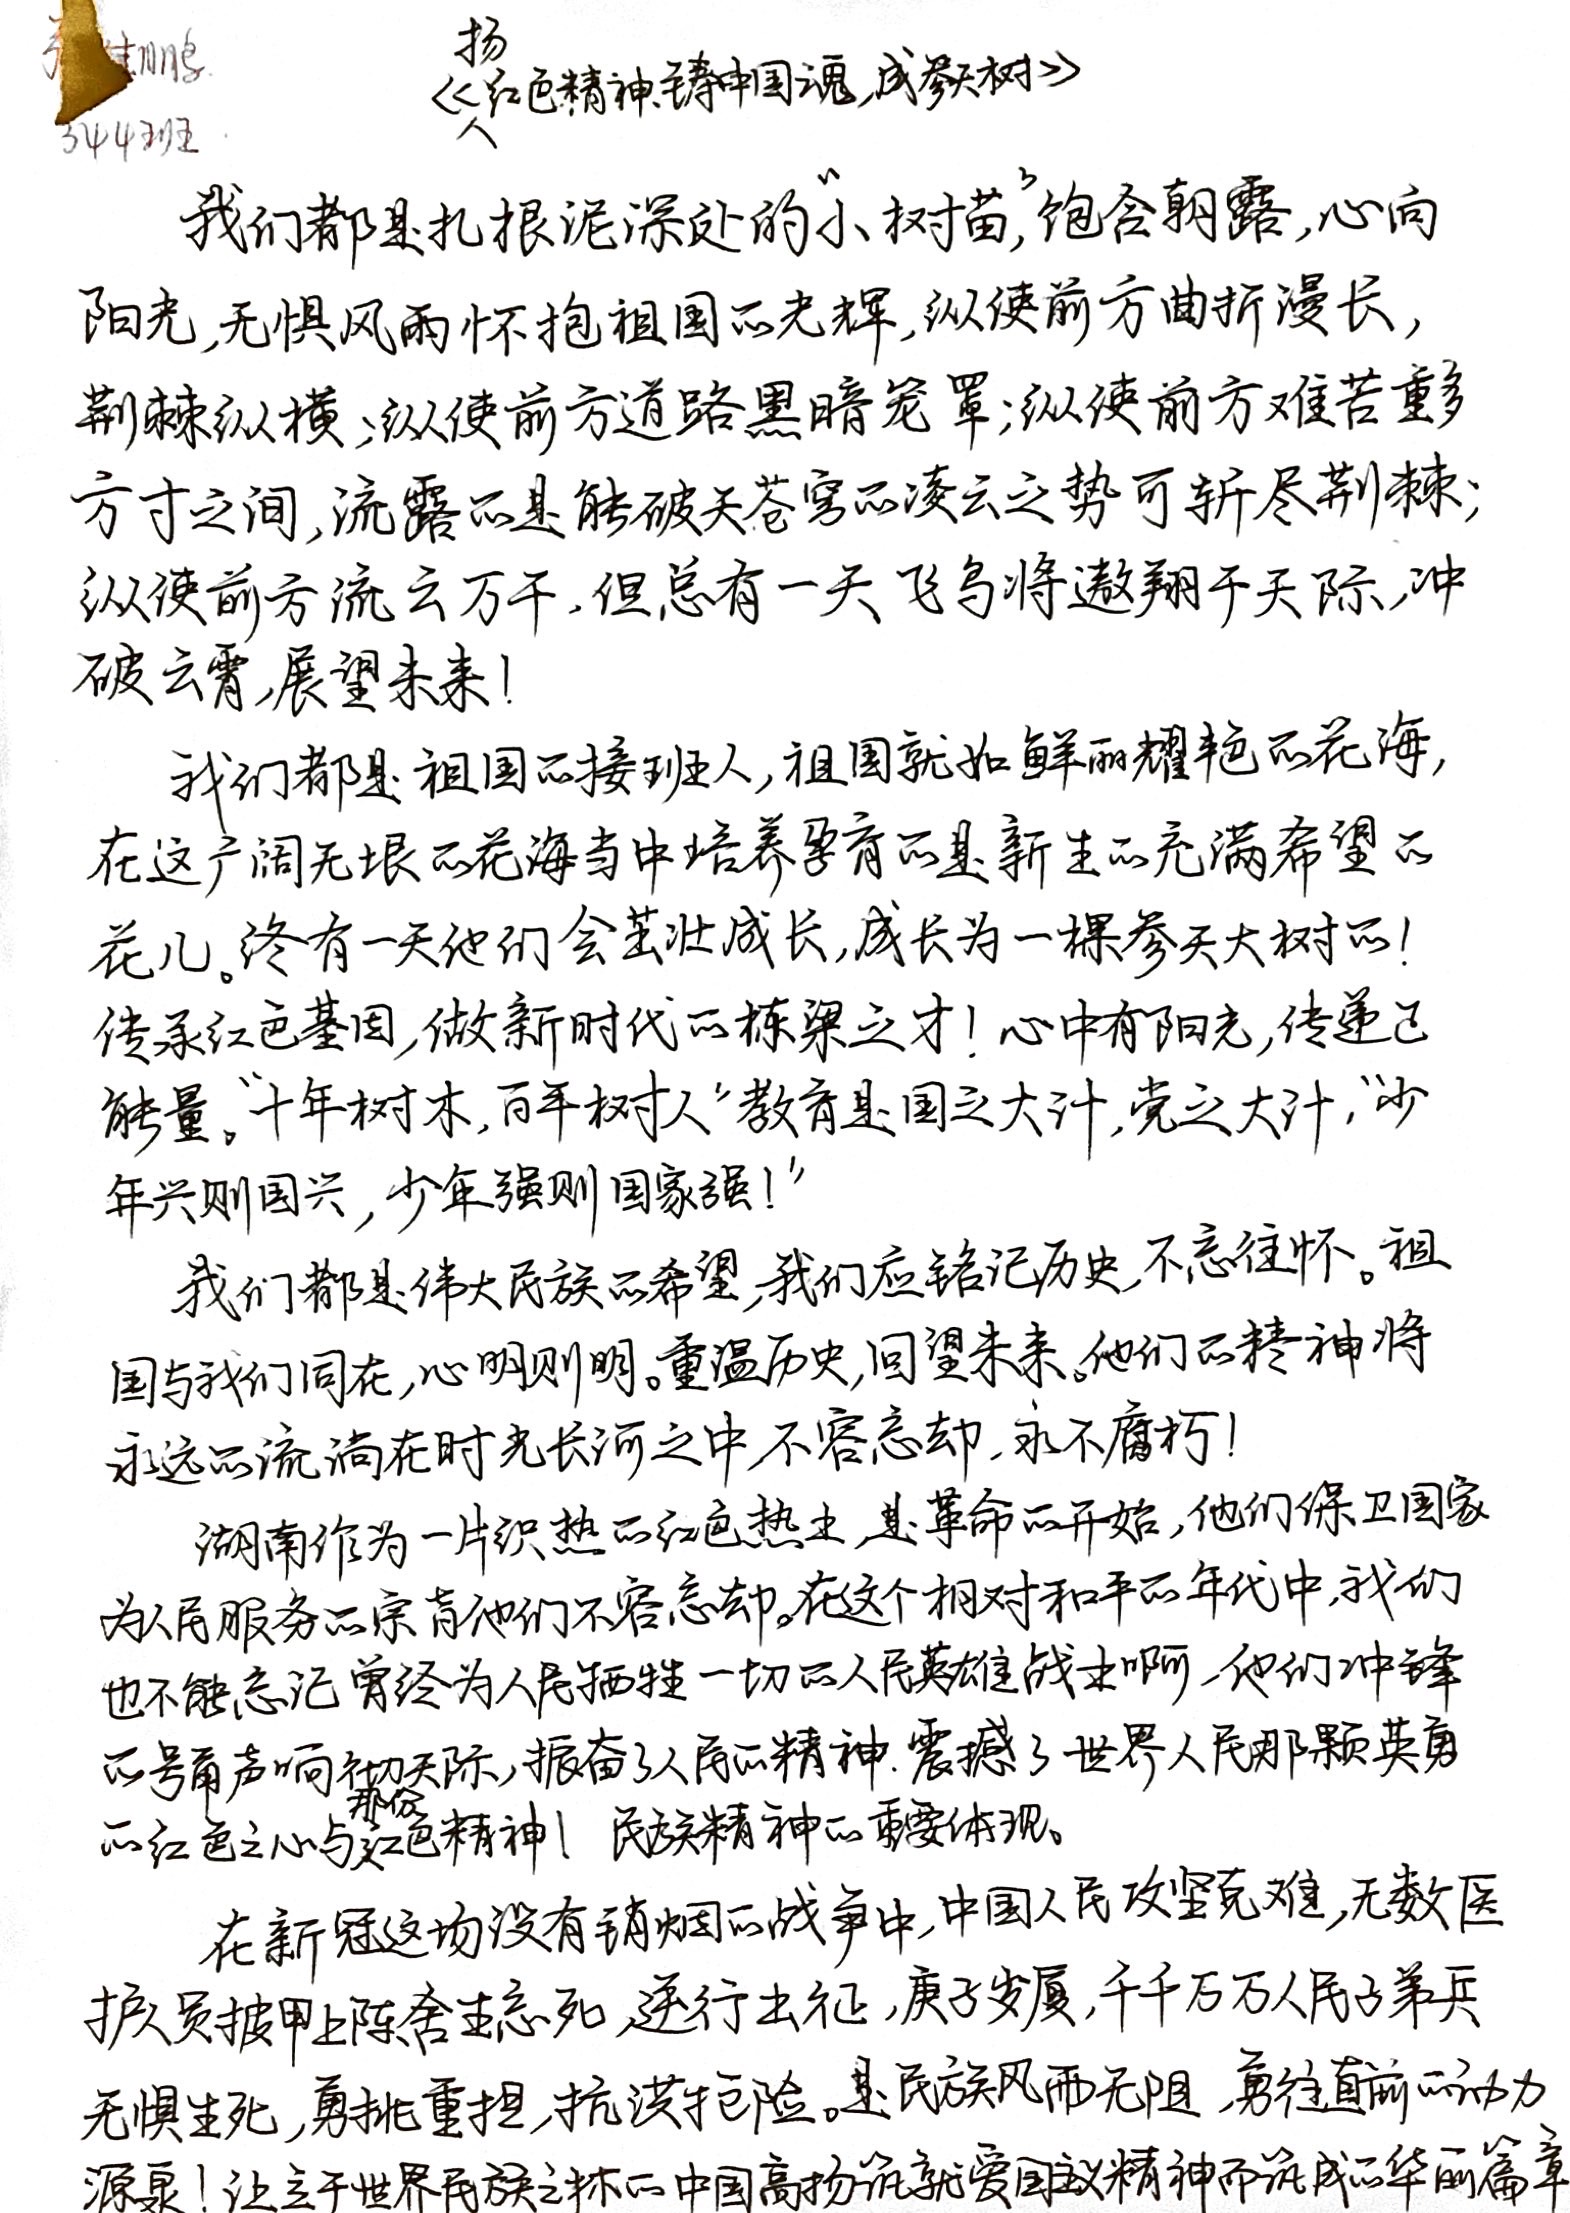 鹏
344班
扬
《红色精神,铸中国魂,成参天树》
我们都是扎根泥深处的“小树苗,”饱含朝露,心向
阳光,无惧风雨怀抱祖国的光辉,纵使前方曲折漫长,
荆棘纵横;纵使前方道路黑暗笼罩;纵使前方难苦重多
方寸之间,流露的是能破天苍穹的凌云之势可斩尽荆棘;
纵使前方流云万千,但总有一天飞鸟将遨翔于天际,冲
破云霄,展望未来!
我们都是祖国的接班人,祖国就如鲜丽耀艳的花海,
在这广阔无垠的花海当中培养孕育的是新生的充满希望的
花儿。终有一天他们会茁壮成长,成长为一棵参天大树的!
传承红色基因,做新时代的栋梁之才!心中有阳光,传递己
能量。“十年树木,百年树人”教育是国之大计,党之大计,“少
年兴则国兴,少年强则国家强!”
我们都是伟大民族的希望,我们应铭记历史,不忘往怀。祖
国与我们同在,心明则明。重温历史,回望未来。他们的精神将
永远的流淌在时光长河之中,不容忘却,永不腐朽!
湖南作为一片炽热的红色热土,是革命的开始,他们保卫国家
为人民服务的宗旨他们不容忘却。在这个相对和平的年代中,我们
也不能忘记曾经为人民牺牲一切的人民英雄战士啊,他们冲锋
的号角声响彻天际,振奋了人民的精神.震撼了世界人民那颗英勇
的红色之心与那份红色精神!民族精神的重要体现。
在新冠这场没有销烟的战争中,中国人民攻坚克难,无数医
护人员披甲上阵舍生忘死,逆行出征,庚子岁夏,千千万万人民子弟兵
无惧生死,勇挑重担,抗洪抢险。是民族风雨无阻,勇往直前的动力
源泉!让立于世界民族之林的中国高扬筑就爱国主义精神而筑成的华丽篇章